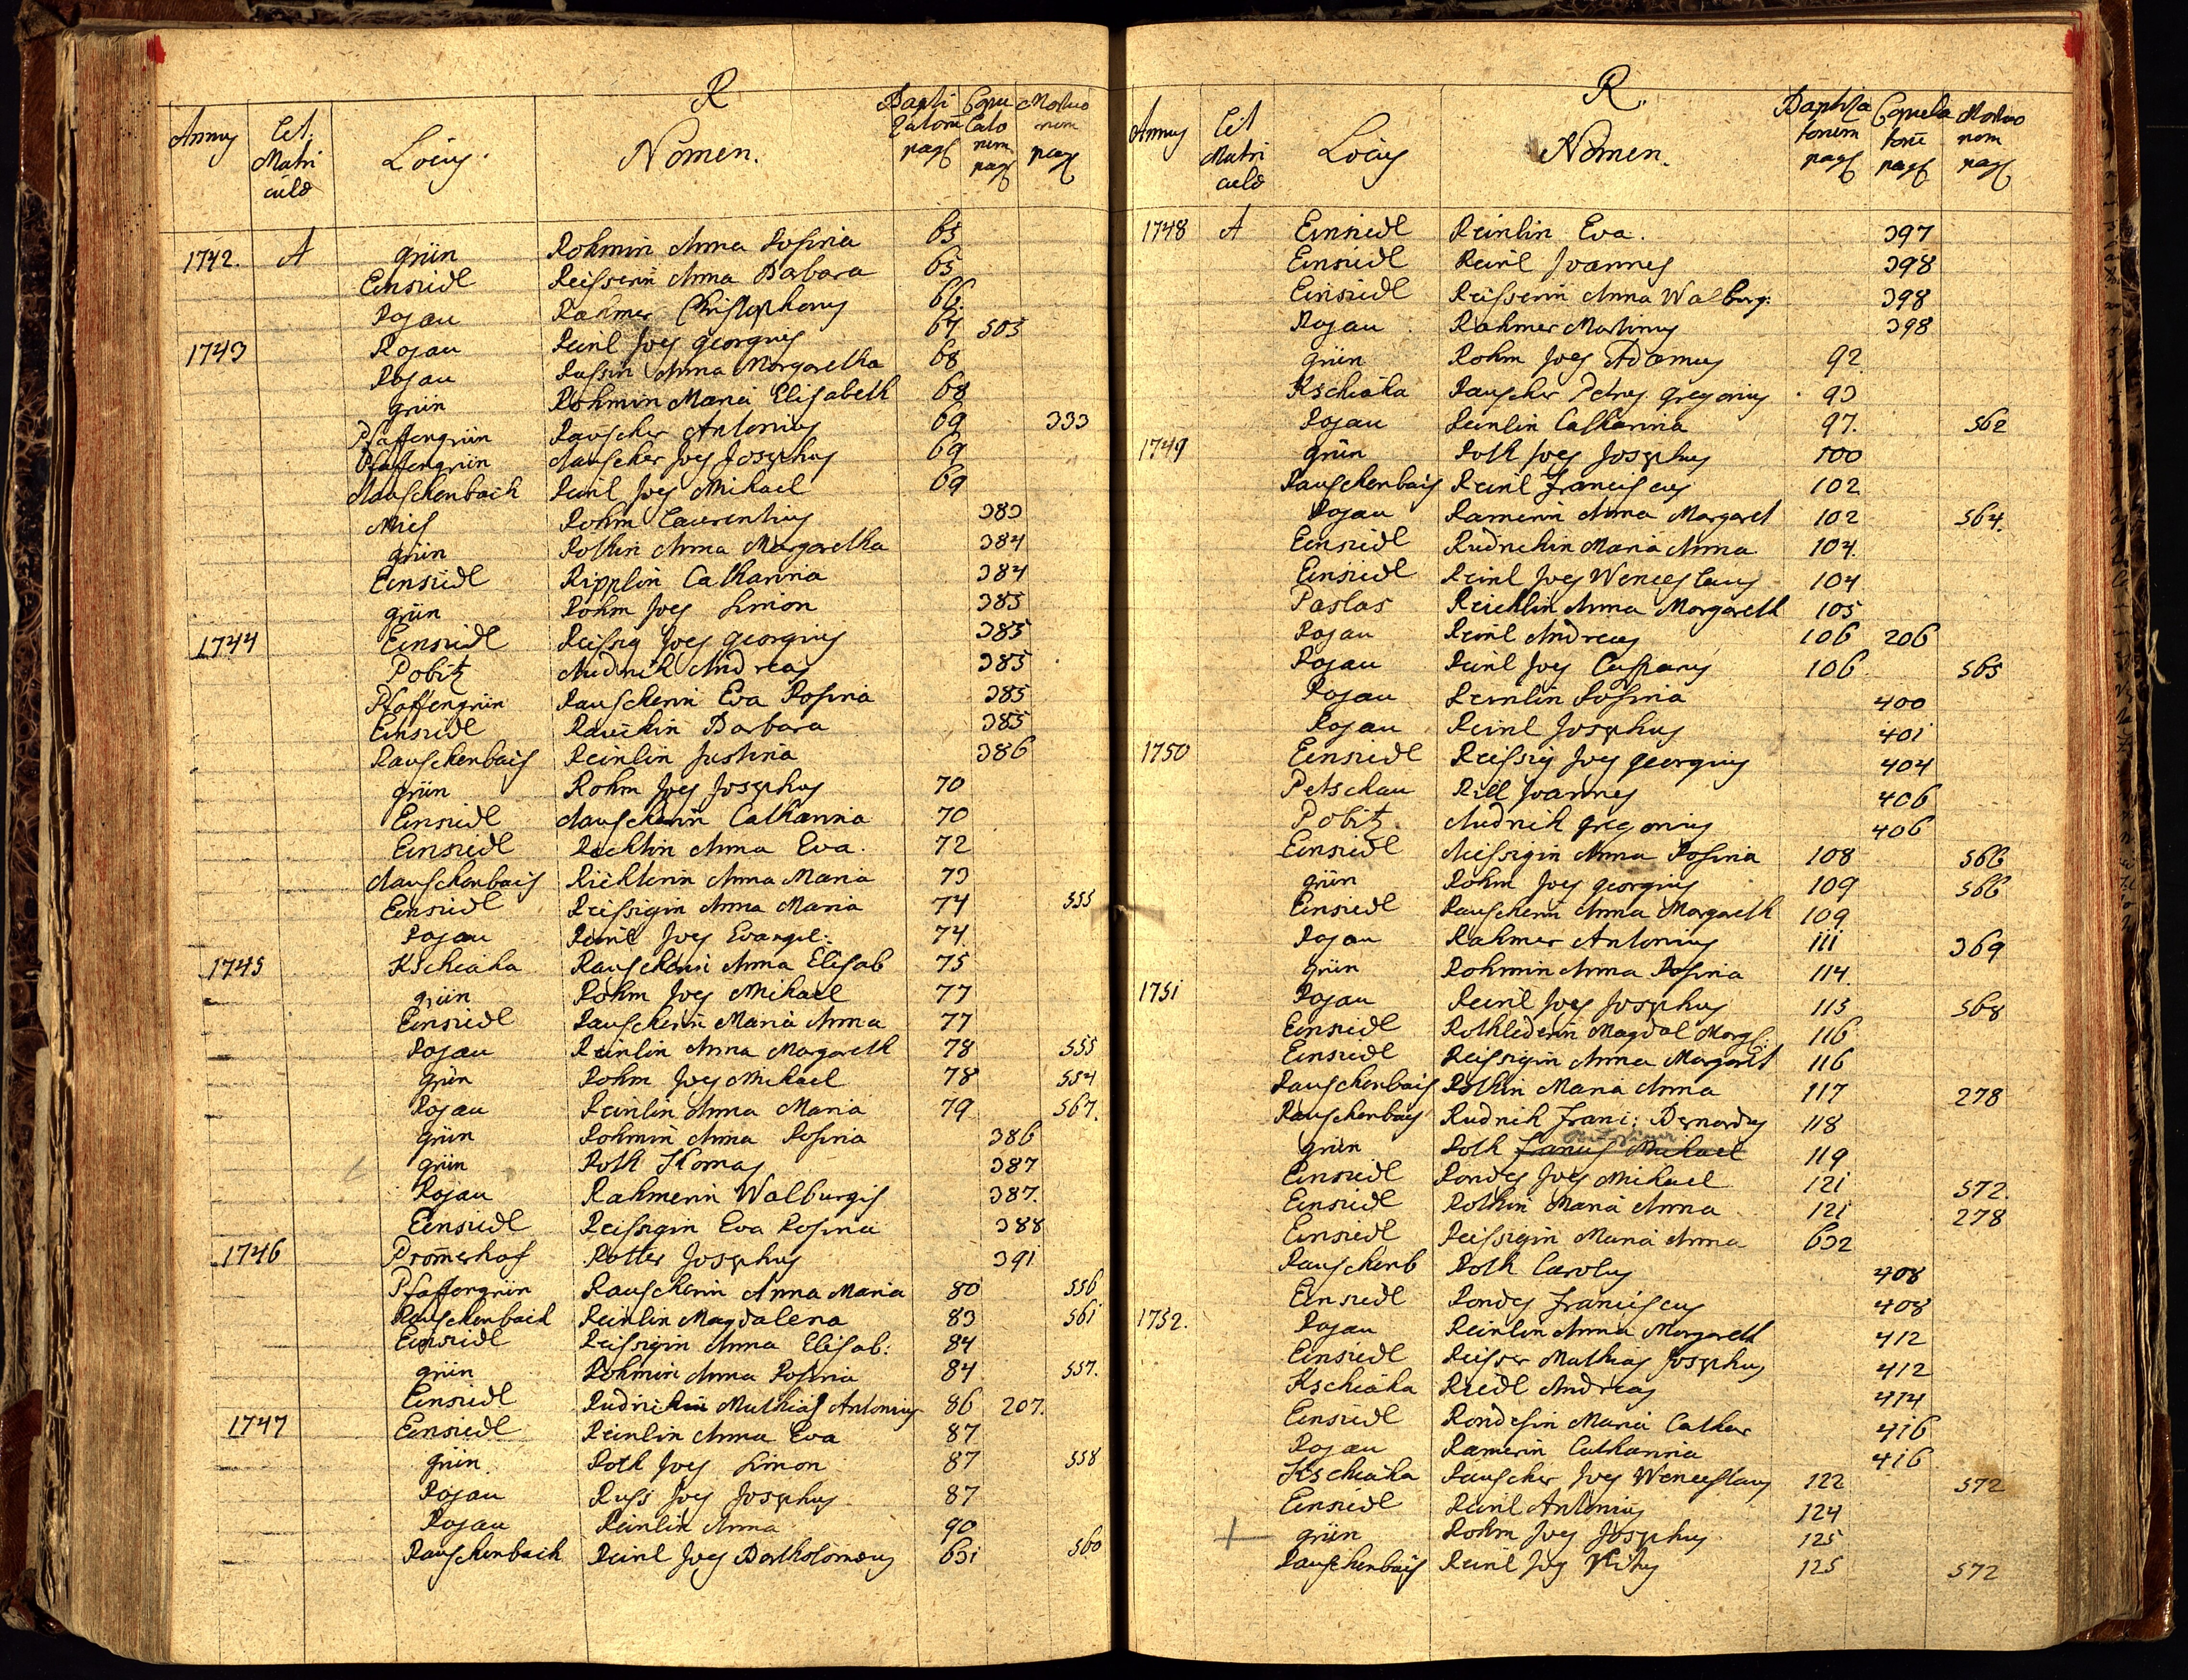 R
Annus Lit. Matri culae Locus. Nomen. Bapti zatorum pag. Copu lato rum pag. Mortuo rum pag.
1742. A grün Rohmin Anna Rosina 65
Einsiedl Reisserin Anna Babara 65
Rojau Rahmer Christophorus 66
1743 Rojau Reinl Joes georgius 67 505
Rojau Russin Anna Margaretha 68
grün Rohmin Maria Elisabeth 68
Pfaffengrün Rauscher Antonius 69 333
Pfaffengrün Rauscher Joes Josephus 69
Rauschenbach Reinl Joes Michael 69
Mies Rohm Laurentius 383
grün Rothin Anna Margaretha 384
Einsiedl Ripplin Catharina 384
grün Rohm Joes Simon 385
1744 Einsiedl Reissig Joes georgius 385
Pobitz Rudnik Andreas 385
Pfaffengrün Rauscherin Eva Rosina 385
Einsiedl Barbara 385
Rauschenbach Reinlin Justina 386
grün Rohm Joes Josephus 70
Einsiedl Rauscherin Catharina 70
Einsiedl Anna Eva. 72
Rauschenbach Richterin Anna Maria 73
Einsiedl Reissigin Anna Maria 74 555
Rojau Reinl Joes Evangel: 74
1745 Kschiaha Rauscherin Anna Elisab 75
grün Rohm Joes Mihael 77
Einsiedl Rauscherin Maria Anna 77
Rojau Reinlin Anna Margareth 78 555
grün Rohm Joes Michael 78 554
Rojau Reinlin Anna Maria 79 567.
grün Rohmin Anna Rosina 386
grün Roth Thomas 387
Rojau Rahmerin Walburgis 387.
Einsiedl Reissigin Eva Rosina 388
1746 Promerhof Rotter Josephus 391
Pfaffengrün Rauscherin Anna Maria 80 556
Rauschenbach Reinlin Magdalena 83 561
Einsiedl Reissigin Anna Elisab: 84
grün Rohmin Anna Rosina 84 557.
Einsiedl Mathias Antonius 86 207.
1747 Einsiedl Reinlin Anna Eva 87
grün Roth Joes Simon 87 558
Rojau Russ Joes Josephus 87
Rojau Reinlin Anna 90
Rauschenbach Reinl Joes Bartholomeus 631 560
R.
Annus Lit Matri culae Locus Nomen. Baptiza torum pag. Copula torum pag. Mortuo rum pag.
1748 A Einsiedl Reinlin Eva. 397
Einsiedl Reinl Joannes 398
Einsiedl Reisserin Anna Walburg: 398
Rojau Rahmer Martinus 398
grün Rohm Joes Adamus 92
Kschiaha Rauscher Petrus gregorius 93
Rojau Reinlin Catharina 97. 562
1749 grün Roth Joes Josephus 100
Rauschenbach Reinl Franciscus 102
Rojau Ramerin Anna Margaret 102 564.
Einsiedl Rudnikin Maria Anna 104.
Einsiedl Reinl Joes Wenceslaus 104
Paslas Reichlin Anna Margareth 105
Rojau Reinl Andreas 106 206
Rojau Reinl Joes Casparus 106 565
Rojau Reinlin Rosina 400
Rojau Reinl Josephus 401
1750 Einsiedl Reissig Joes georgius 404
Petschau Rill Joannes 406
Pobitz. Rudnik gregorius 406
Einsiedl Reissigin Anna Rosina 108 566
grün Rohm Joes georgius 109 566
Einsiedl Rauscherin Anna Margareth 109
Rojau Rahmer Antonius 111 369
grün Rohmin Anna Rosina 114.
1751 Rojau Reinl Joes Josephus 115 568
Einsiedl Rothlederin Magdal Marg: 116
Einsiedl Reissigin Anna Margaret 116
Rauschenbach Rothin Maria Anna 117 278
Rauschenbach Rudnik Franc: Bernardus 118
grün Roth Michael 119
Einsiedl Rondes Joes Mihael 121 572.
Einsiedl Rothin Maria Anna 121 278
Einsiedl Reissigin Maria Anna 632
Rauschenb Roth Carolus 408
Einsiedl Rondes Franciscus 408
1752. Rojau Reinlin Anna Margareth 412
Einsiedl Reisser Mathias Josephus 412
Kschiaha Riedl Andreas 414
Einsiedl Rondesin Maria Cathar 416
Rojau Ramerin Catharina 416
Kschiaha Rauscher Joes Wenceslaus 122 572
Einsiedl Reinl Antonius 124
grün Rohm Joes Josephus 125
Rauschenbach Reinl Joes Vitus 125 572